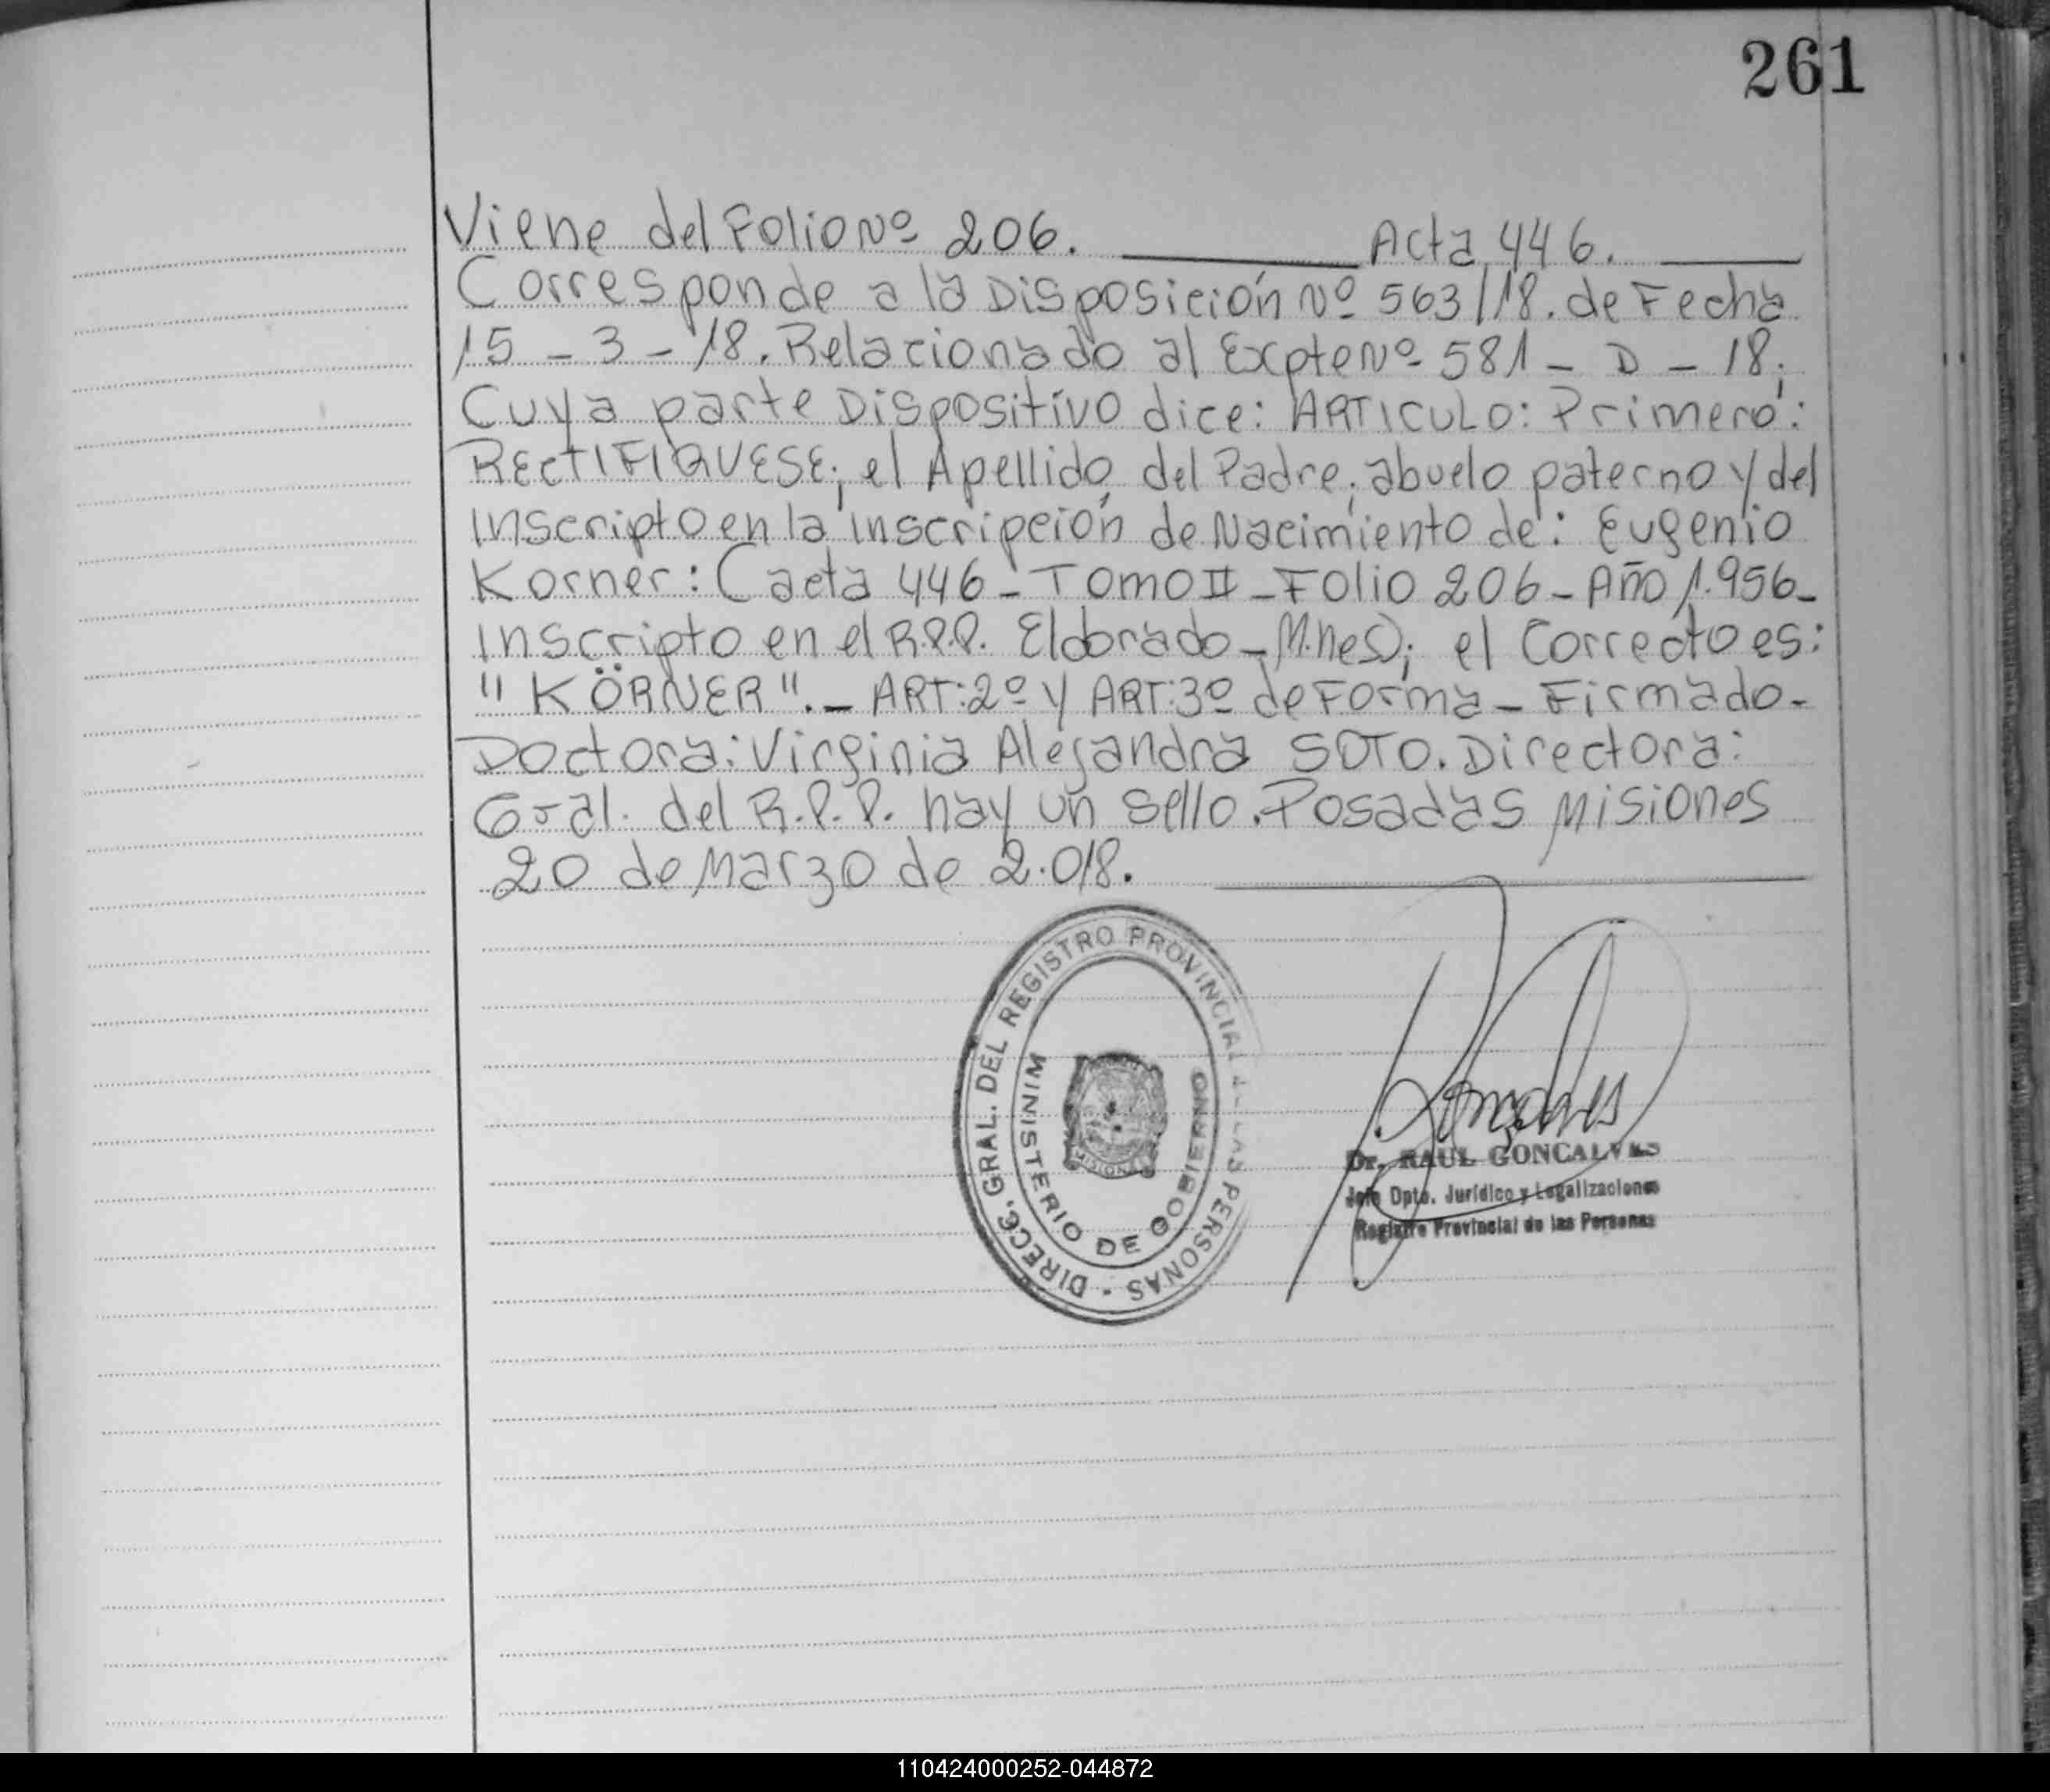 261
Viene del Folio Nº 206. Acta 446.
Corresponde a la Disposición Nº 563/18. de Fecha
15 - 3 - 18. Relacionado al Expte Nº 581 - D - 18;
Cuya parte Dispositivo dice: ARTICULO: Primero:
RECTIFIQUESE; el Apellido del Padre; abuelo paterno y del
Inscripto en la inscripción de Nacimiento de: Eugenio
Korner: (acta 446 - TOMO II - Folio 206 - Año 1.956 -
Inscripto en el R.P.P. Eldorado - M.nes); el Correcto es:
"KÖRNER". - ART: 2º y ART: 3º de Forma - Firmado -
Doctora: Virginia Alejandra SOTO. Directora:
Gral. del R.P.P. hay un sello. Posadas Misiones
20 de Marzo de 2.018.
DIRECC. GRAL. DEL REGISTRO PROVINCIAL DE LAS PERSONAS
MINISTERIO DE GOBIERNO
MISIONES
Goncalves
Dr. RAUL GONCALVES
Jefe Dpto. Jurídico y Legalizaciones
Registro Provincial de las Personas
110424000252-044872